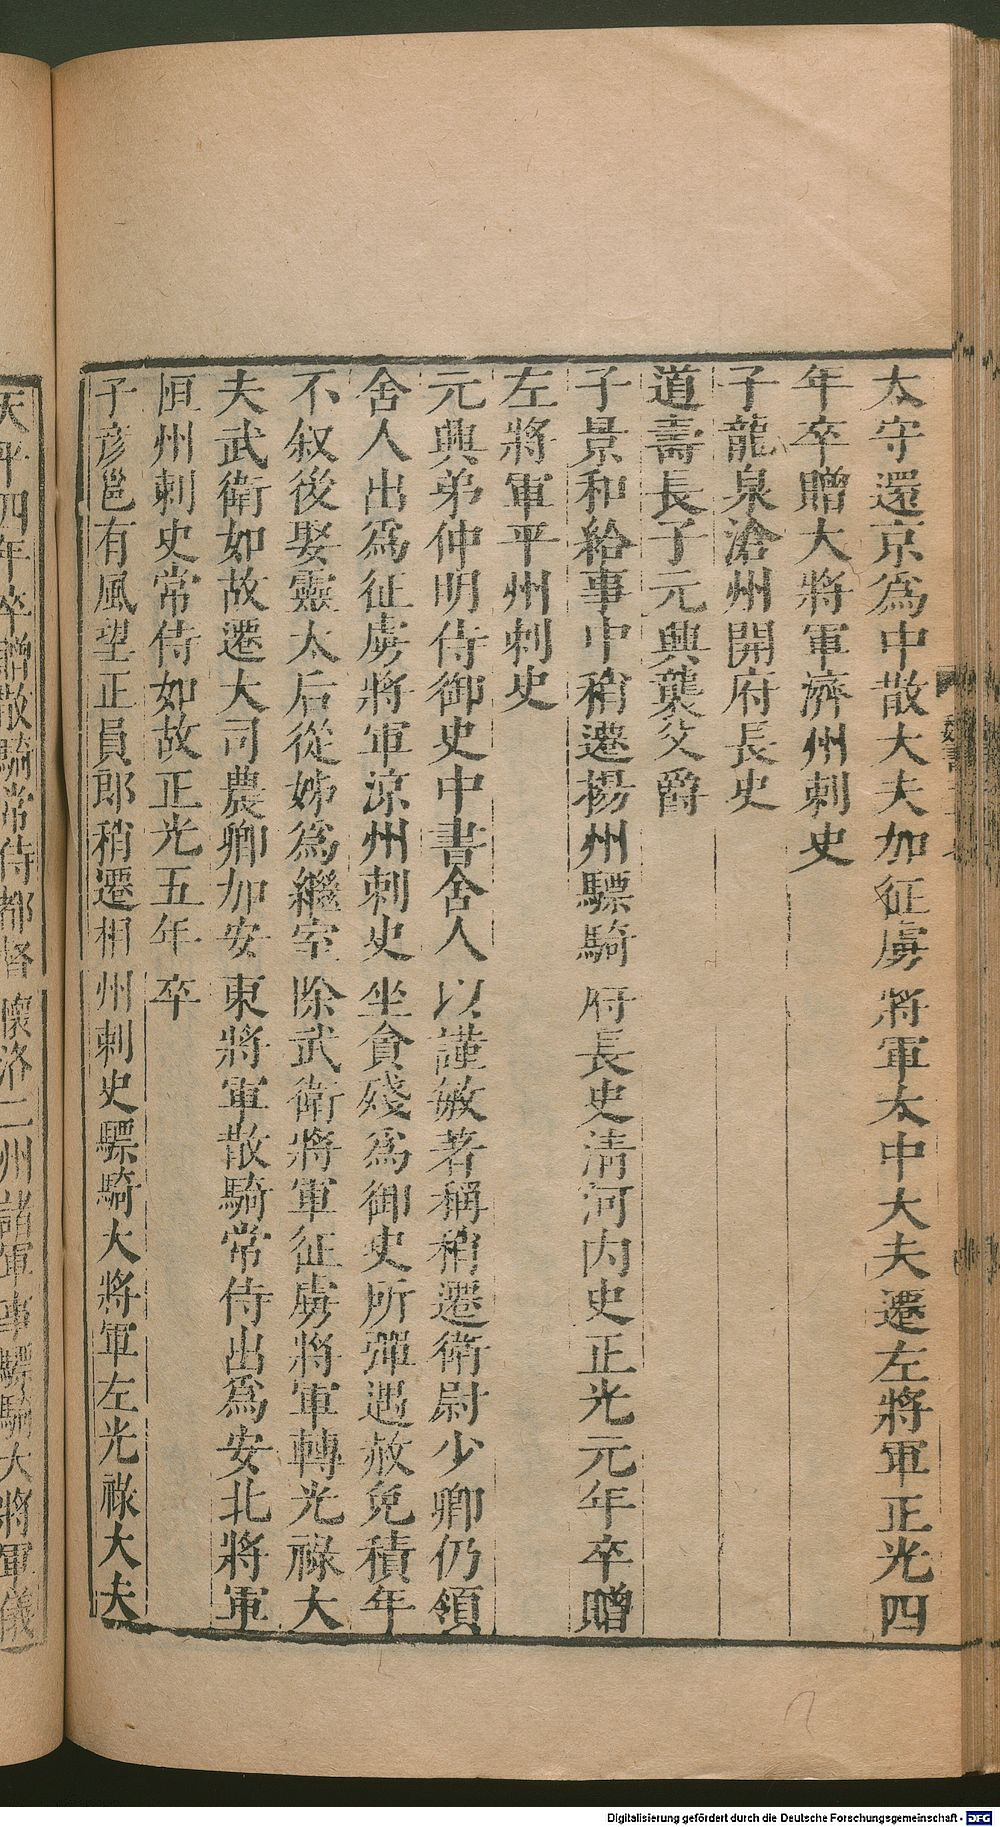 太守還京為中散大夫加征虜將軍太中大夫遷左將軍正光四
年卒贈大將軍濟州刺史
子龍泉滄州開府長史
道壽長子元興襲父爵
子景和給事中稍遷揚州驃騎府長史淸河內史正光元年卒贈
左將軍平州刺史
元興弟仲明侍御史中書舍人以謹敏著稱稍遷衛尉少卿仍領
舍人出為征虜將軍涼州刺史坐貪殘為御史所彈遇赦免積年
不叙後娶靈太后從姊為繼室除武衛將軍征虜將軍轉光祿大
夫武衛如故遷大司農卿加安東將軍散騎常侍出為安北將軍
恒州刺史常侍如故正光五年卒
子彥邕有風望正員郎稍遷相州刺史驃騎大將軍左光祿大夫
天平四年卒贈散騎常侍都督懷洛二州諸軍事驃騎大將軍儀
Digitalisierung gefördert durch die Deutsche Forschungsgemeinschaft - DFG